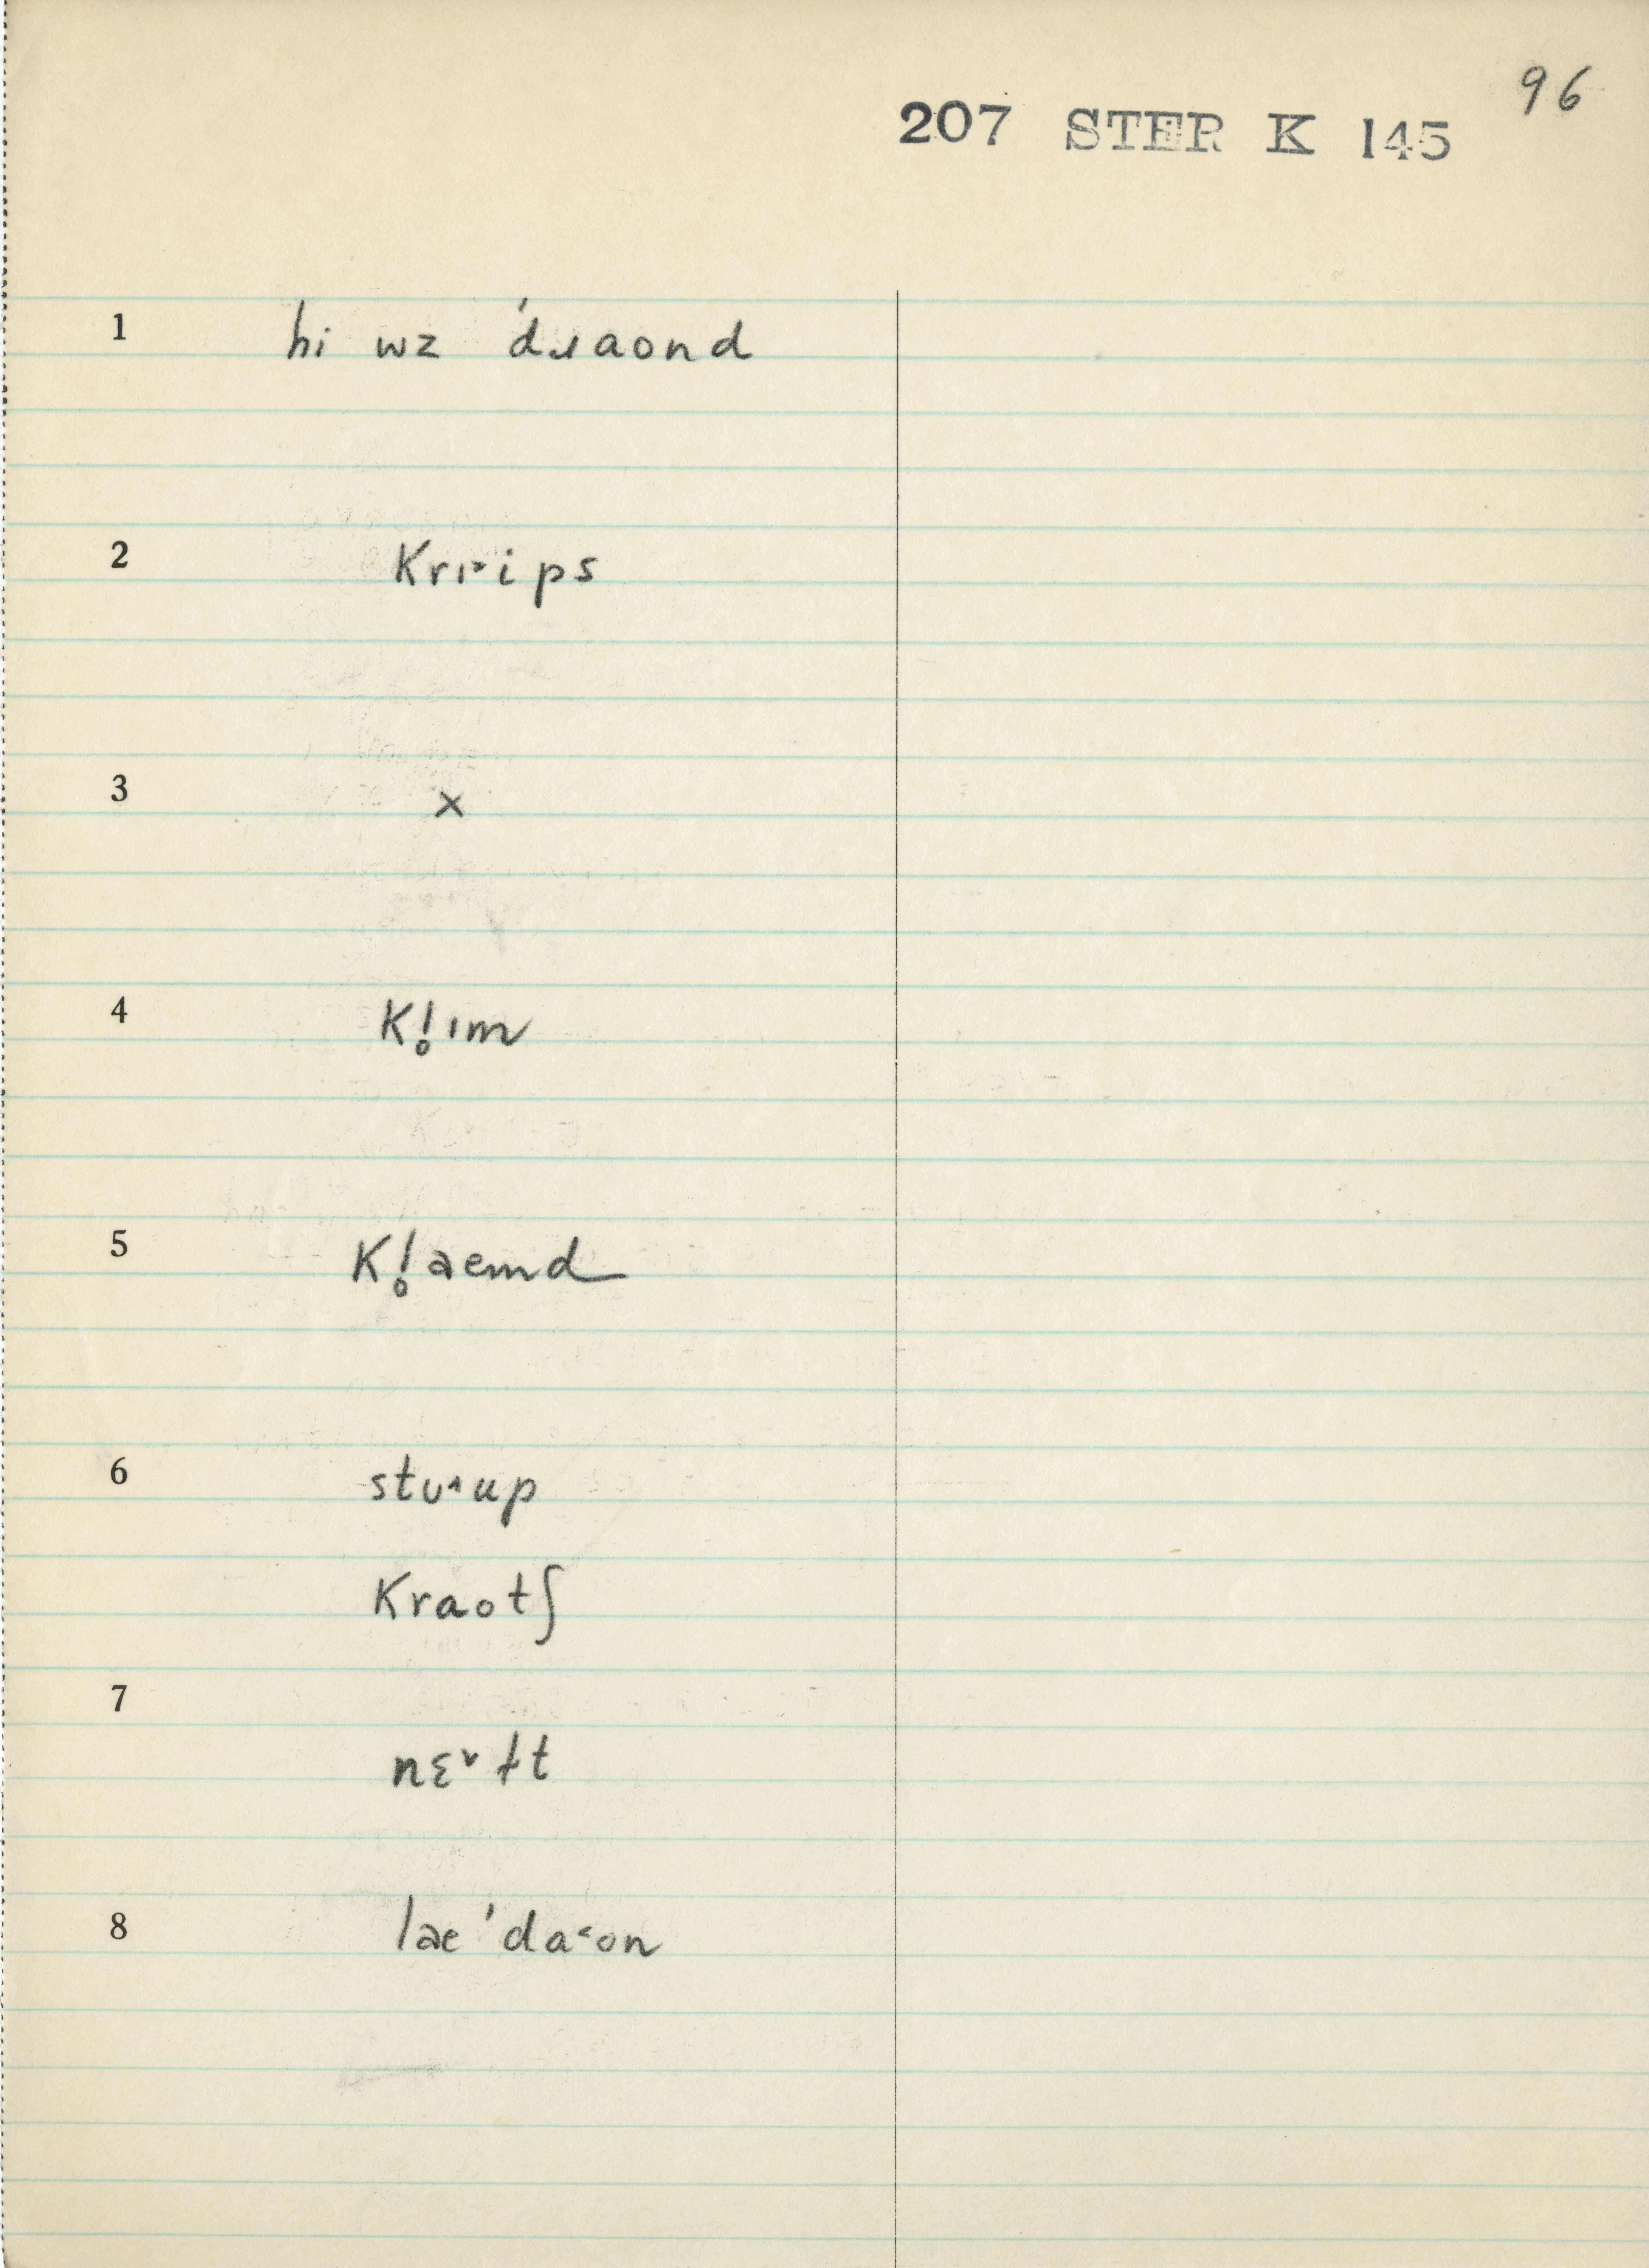 96
207 STER K 145
1 hi wz ˈdɹaond
2 krɪ˔ips
3 x
4 kl̥ɪm
5 kl̥aemd
6 stʊ˔up
kraotʃ
7
nɛ˅ɫt
8 lae ˈda˂on